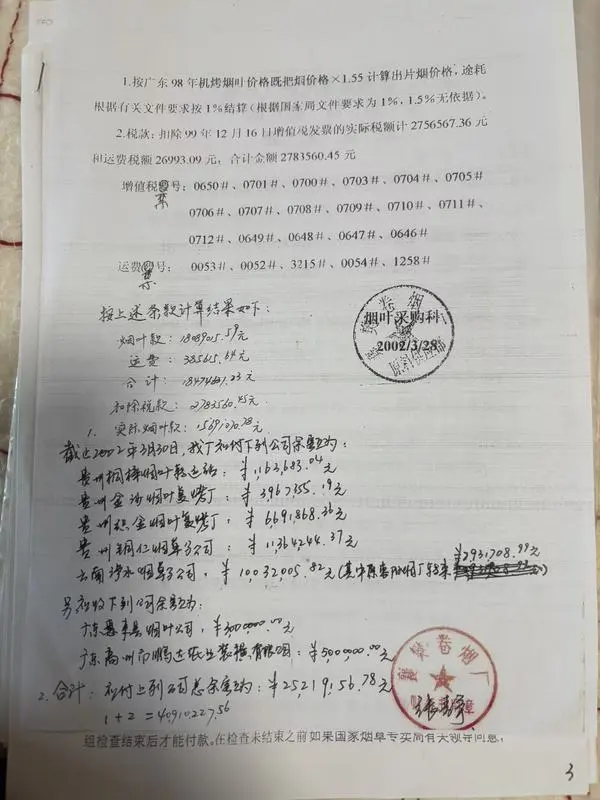 1.按广东98年机烤烟叶价格既把烟价格×1.55计算出片烟价格，途耗
根据有关文件要求按1%结算（根据国家局文件要求为1%，1.5%无依据）。
2.税款：扣除99年12月16日增值税发票的实际税额计2756567.36元
和运费税额26993.09元，合计金额2783560.45元
增值税票号：0650#、0701#、0700#、0703#、0704#、0705#
0706#、0707#、0708#、0709#、0710#、0711#、
0712#、0649#、0648#、0647#、0646#
运费票号：0053#、0052#、3215#、0054#、1258#
按上述条款计算结果如下：
烟叶款：
运费：385615.64元
合计：
扣除税款：2783560.45元
1. 实际烟叶款：
烟叶采购科
2002/3/28
截止2002年3月30日，我厂应付下列公司余额为：
贵州桐梓烟叶转运站：¥1,163,683.04元
贵州金沙烟叶复烤厂：¥3,967,355.19元
贵州织金烟叶复烤厂：¥6,691,868.36元
贵州铜仁烟草分公司：¥11,364,244.37元
云南 烟草分公司：¥10,032,005.82元（其中 烟厂转来¥2,931,708.99元）
另应收下列公司余额为：
广东 县烟叶公司：¥300000.00元
广东高州市鹏达 装 有限公司：¥500,000.00元
2. 合计：应付上列公司总余额为：¥25,219,156.78元
1+2=40910227.56
卷烟厂
组检查结束后才能付款。在检查未结束之前如果国家烟草专卖局有关领导问息，
3